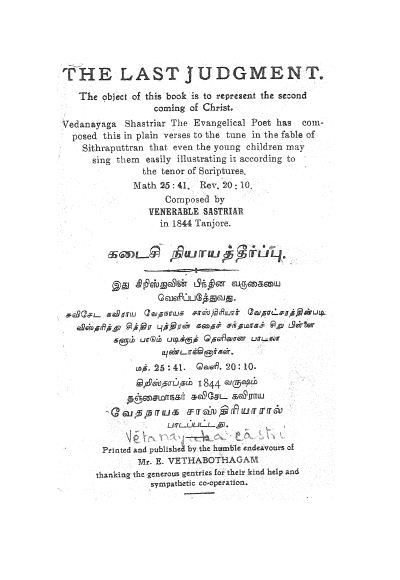 THE LAST JUDGMENT.
The object of this book is to represent the second
coming of Christ.
Vedanayaga Shastriar The Evangelical Poet has com-
posed this in plain verses to the tune in the fable of
Sithraputtran that even the young children may
sing them easily illustrating it according to
the tenor of Scriptures.
Math 25:41. Rev. 20:10.
Composed by
VENERABLE SASTRIAR
in 1844 Tanjore.
கடைசி நியாயத்தீர்ப்பு.
இது கிறிஸ்துவின் பிந்தின வருகையை
வெளிப்படுத்துவது.
சுவிசேட கவிராய வேதநாயக சாஸ்திரியார் வேதாட்சரத்தின்படி
விஸ்தரித்து சித்திர புத்திரன் கதைச் சந்தமாகச் சிறு பிள்ளை
களும் பாடும் படிக்குத் தெளிவான பாடலா
யுண்டாக்கினார்கள்.
மத். 25:41. வெளி. 20:10.
கிறிஸ்தாப்தம் 1844 வருஷம்
தஞ்சைமாநகர் சுவிசேட கவிராய
வேதநாயக சாஸ்திரியாரால்
பாடப்பட்டது.
Vētanāyaka cāstri
Printed and published by the humble endeavours of
Mr. E. VETHABOTHAGAM
thanking the generous gentries for their kind help and
sympathetic co-operation.